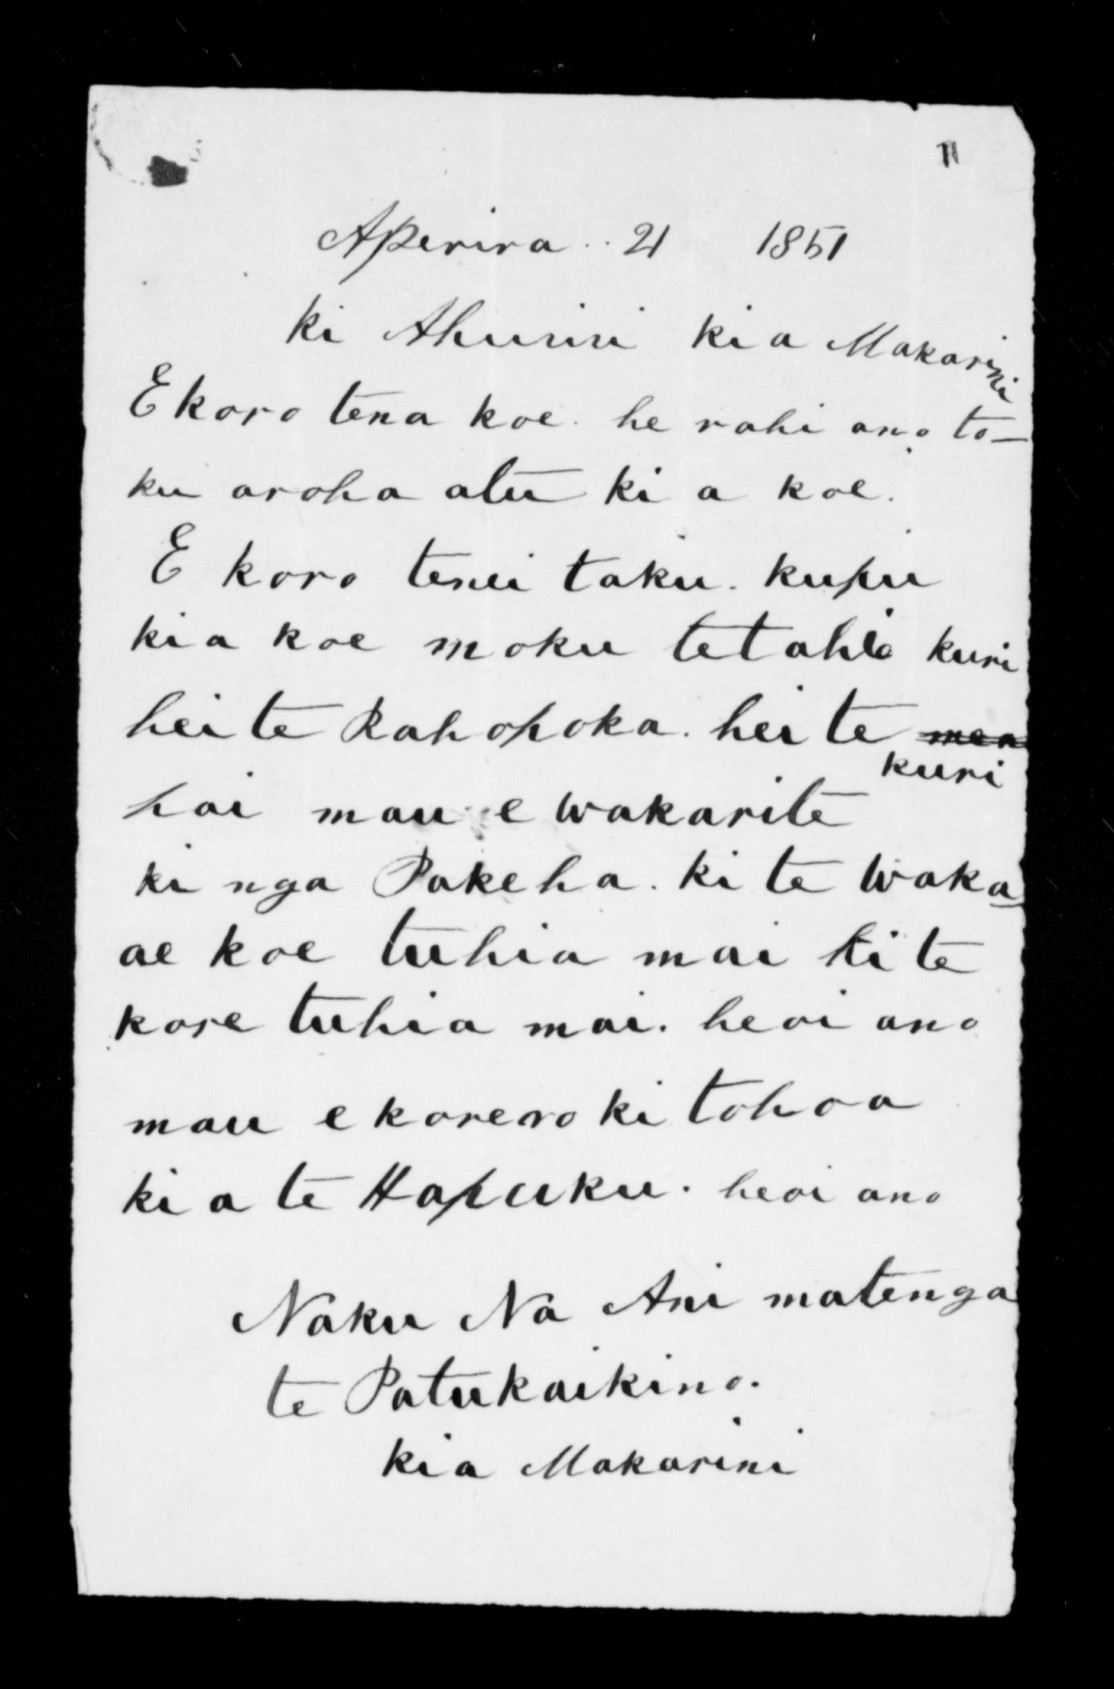 11
Aperira .. 21 1851
ki Ahuriri kia Makarini
E koro tena koe. he rahi ano to-
ku aroha atu ki a koe.
E koro tenei taku. kupu
kia koe moku tetahi kuri
hei te Kahohoka. hei te
kuri
hai mau e wakarite
ki nga Pakeha. ki te Waka
ae koe tuhia mai ki te
kore tuhia mai. heoi ano
mau e korero ki tohoa
ki a te Hapuku. heoi ano
Naku Na Ani matenga
te Patukaikino.
kia Makarini